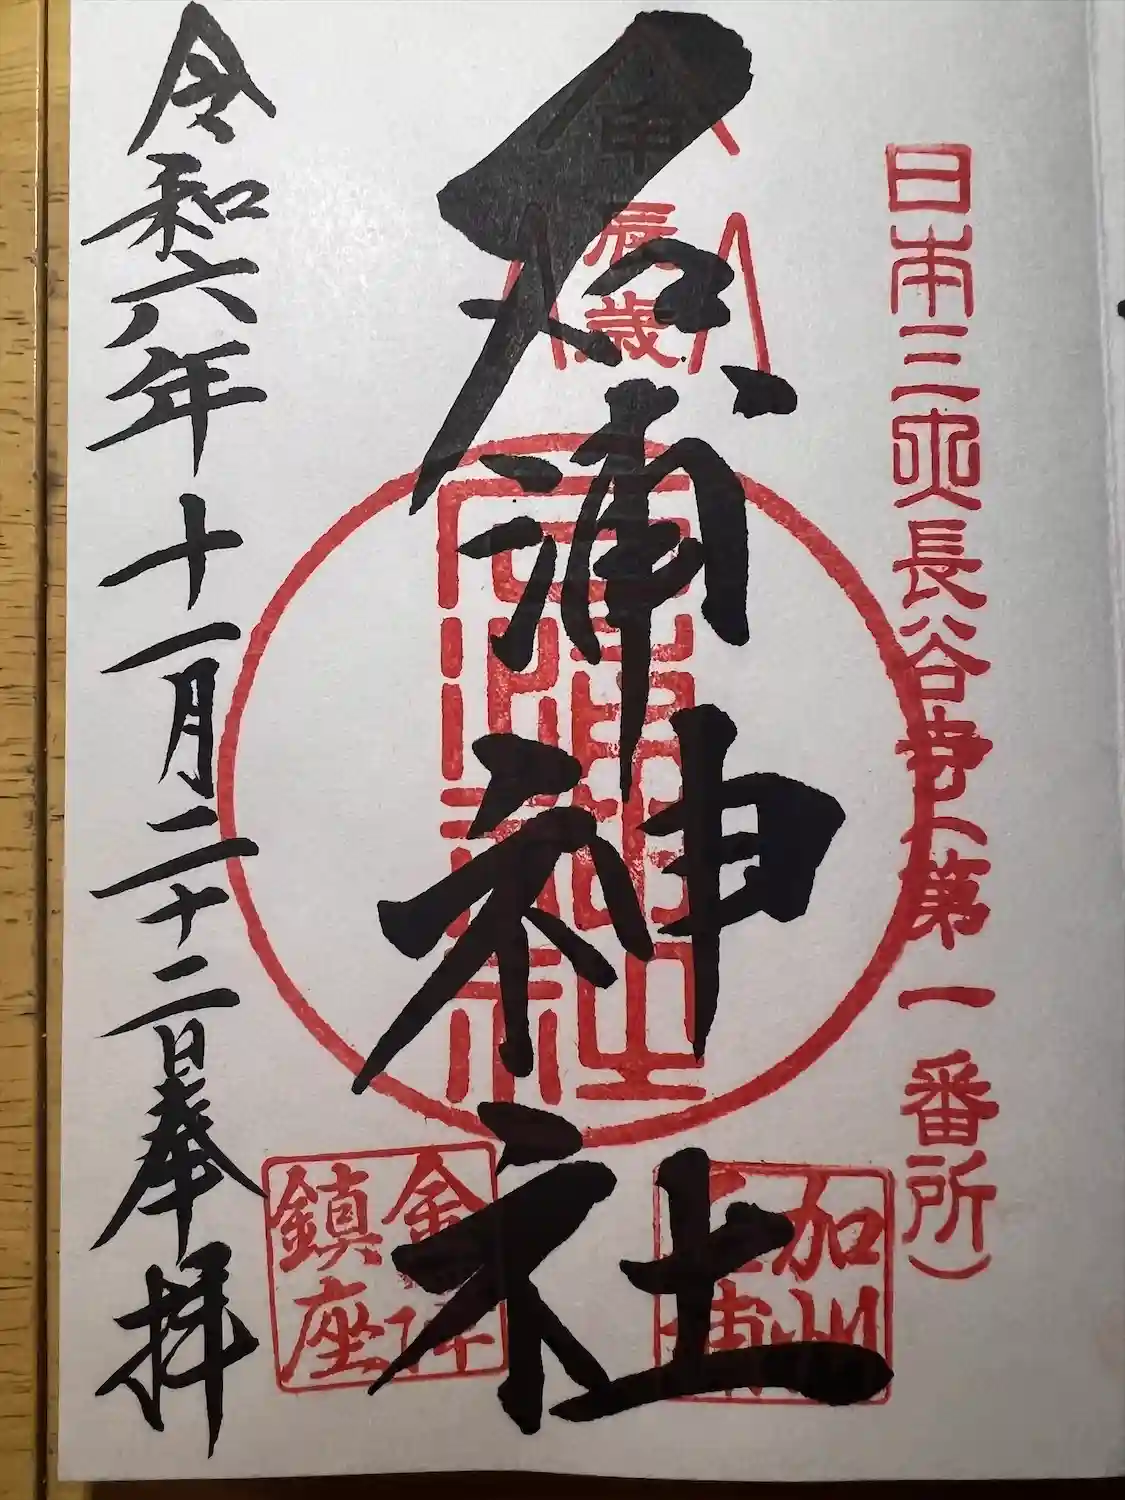 日本三長谷寺(第一番所)
甲辰歳
石浦神社
加州
石浦
鎮座
令和六年十一月二十二日奉拝